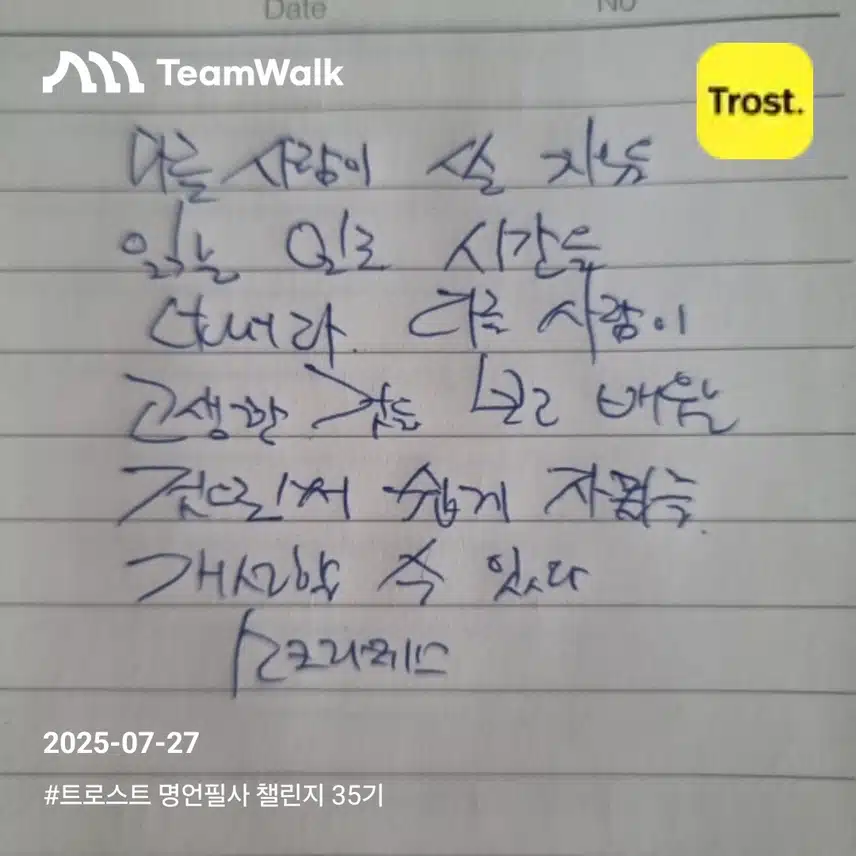 Date No
TeamWalk
Trost.
다른 사람이 쓴 책을
읽는 일로 시간을
보내라. 다른 사람이
고생한 것을 보고 배우는
것으로서 쉽게 자뀜을
개선할 수 있다
소크라테스
2025-07-27
#트로스트 명언필사 챌린지 35기